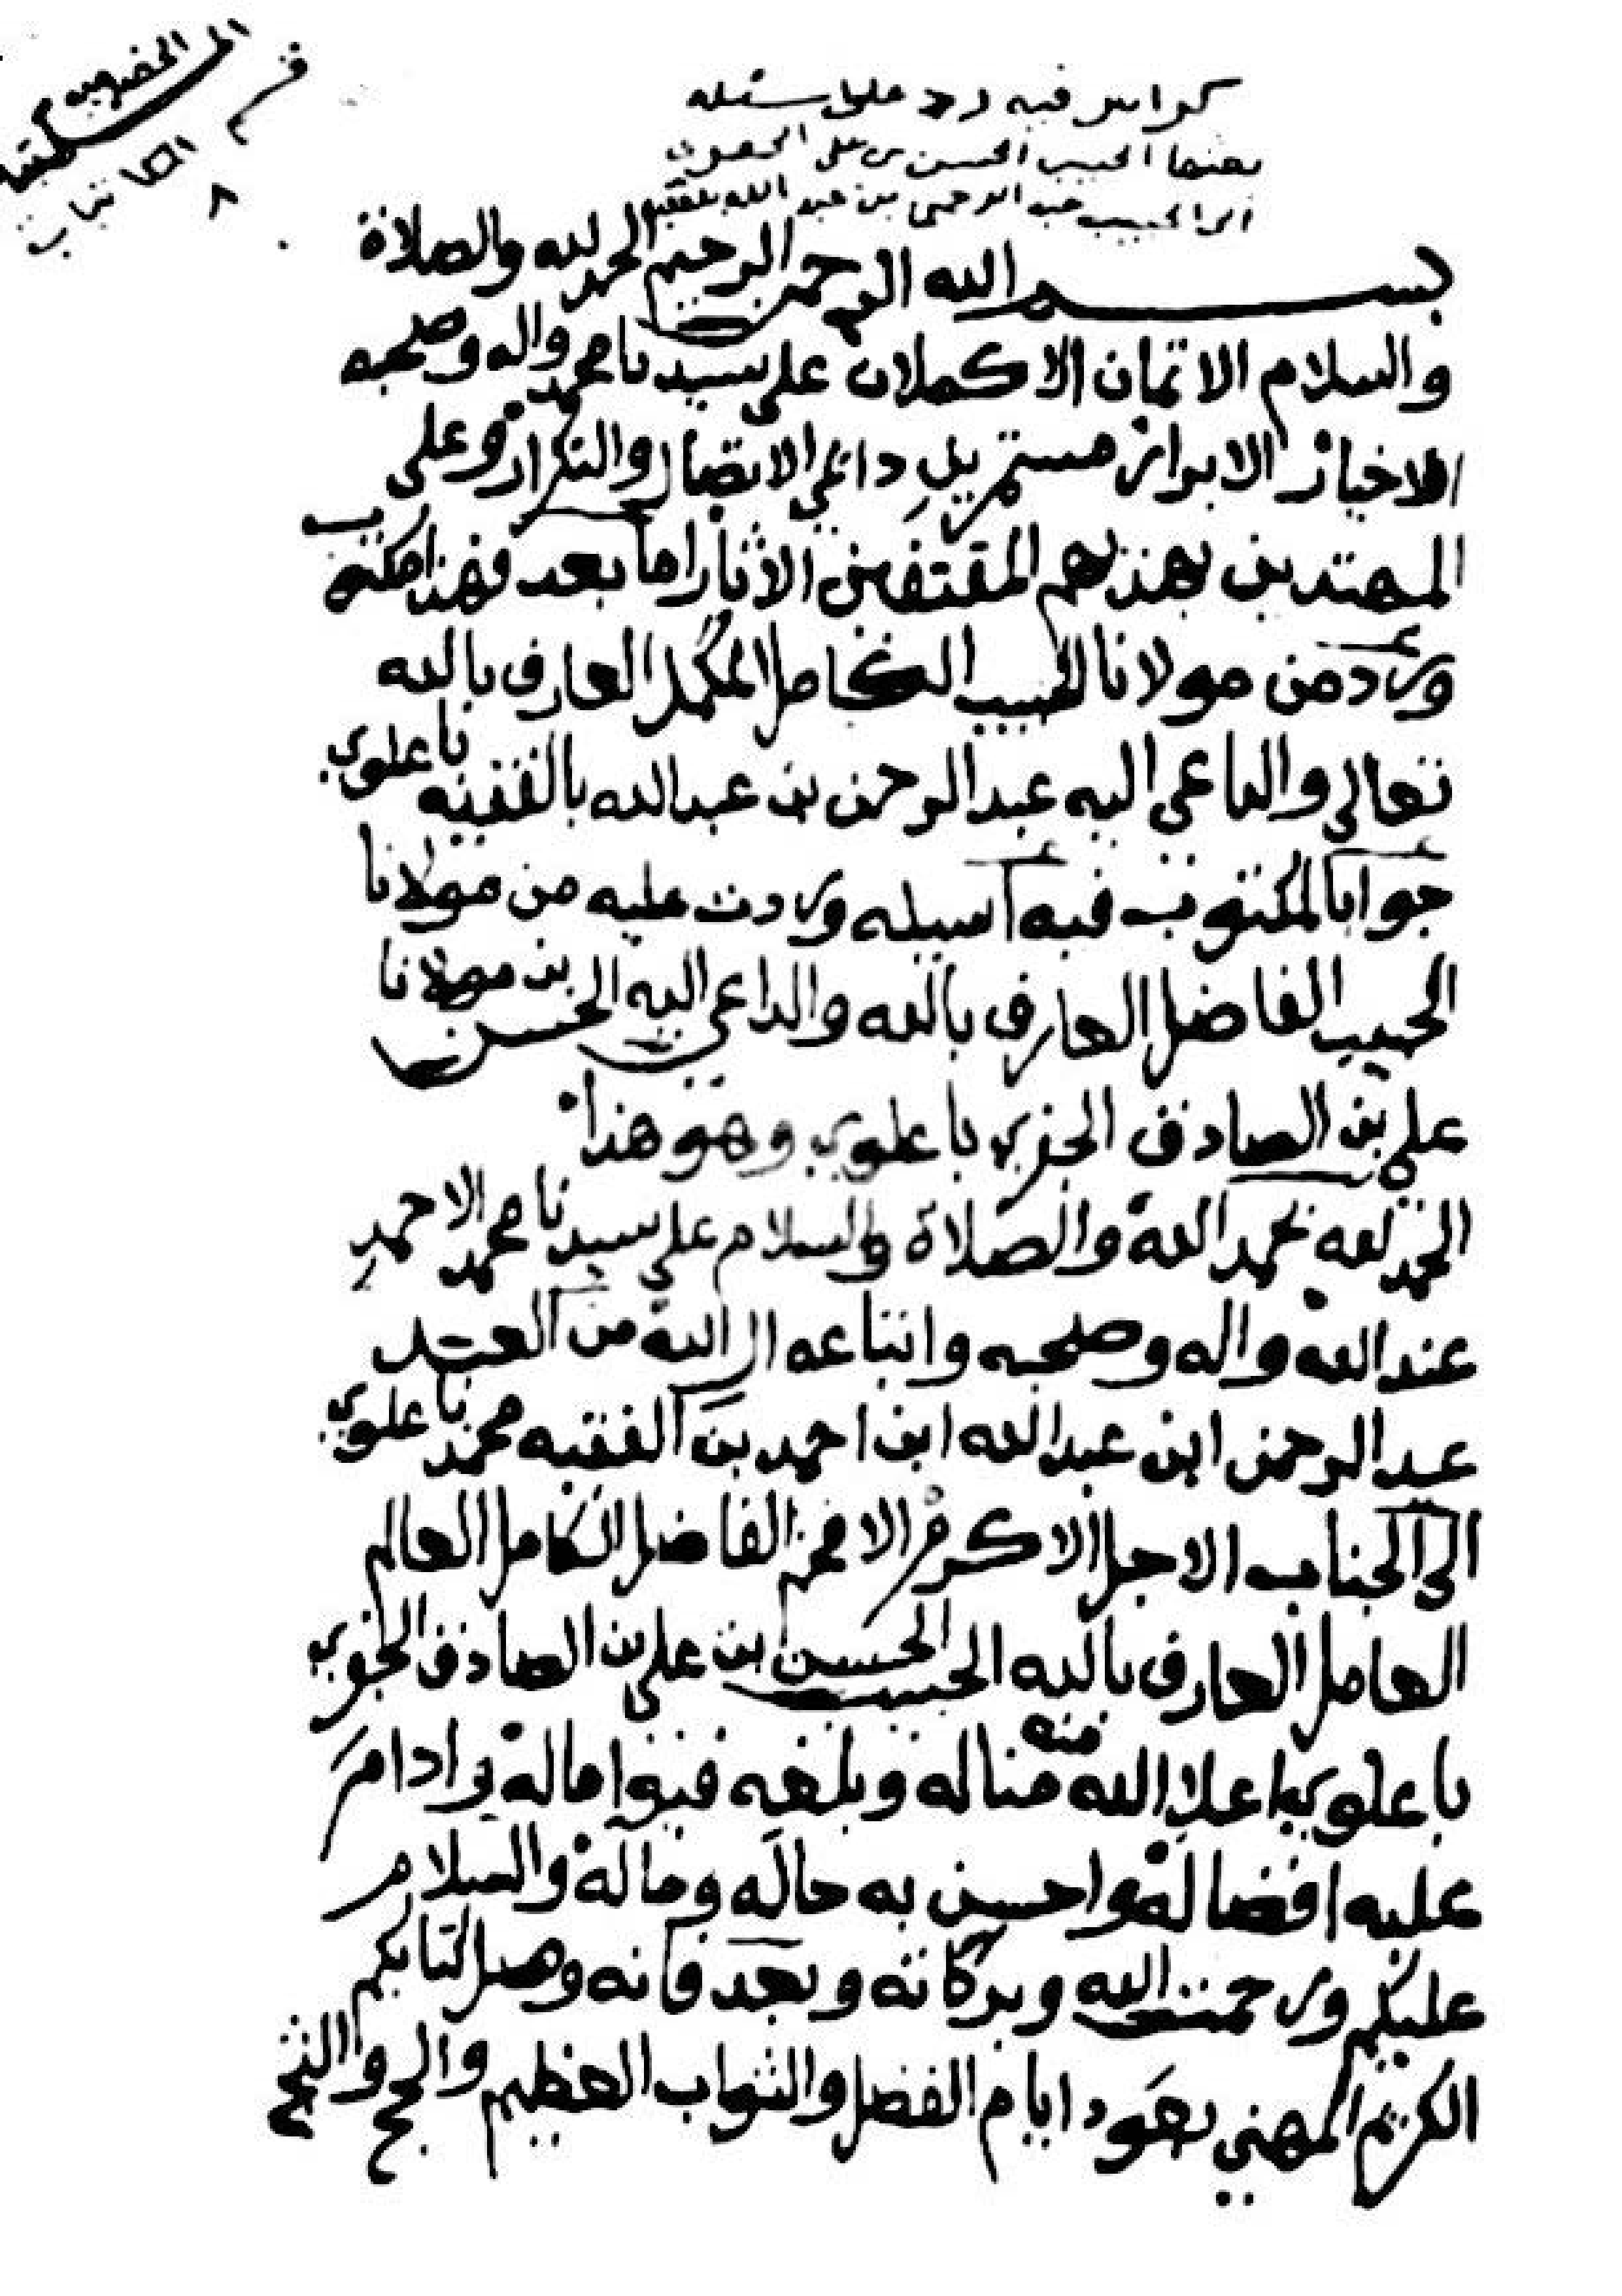 كراس فيه رد على اسئله
بعثها الحبيب الحسن بن علي
الى الحبيب عبد الرحمن بن عبد الله بلفقيه
بسم الله الرحمن الرحيم الحمد لله والصلاة
والسلام الاتمان الاكملان على سيدنا محمد واله وصحبه
الاخيار الابرار مستمرين دائمي الاتصال والتكرار وعلى
المهتدين بهديهم المقتفين الاثار اما بعد فهذا مكتوب
ورد من مولانا الحبيب الكامل المكمل العارف بالله
تعالى والداعي اليه عبد الرحمن بن عبد الله بالفقيه باعلوي
جوابا لمكتوب فيه اسيله وردت عليه من مولانا
الحبيب الفاضل العارف بالله والداعي اليه الحسن بن مولانا
علي بن الصادق باعلوي وهو هذا
الحمد لله بحمد الله والصلاة والسلام على سيدنا محمد الاحمد
عند الله واله وصحبه واتباعه ال الله من العبد
عبد الرحمن ابن عبد الله ابن احمد بن الفقيه محمد باعلوي
الى الجناب الاجل الاكرم الافخر الفاضل الكامل العالم
العامل العارف بالله الحبيب الحسن بن علي بن الصادق
باعلوي اعلا الله مناله وبلغه فيه اماله وادام
عليه افضاله واحسن به حاله وماله والسلام
عليكم ورحمت الله وبركاته وبعد فانه وصل كتابكم
الكريم المهني بعود ايام الفضل والثواب العظيم والحج والثج